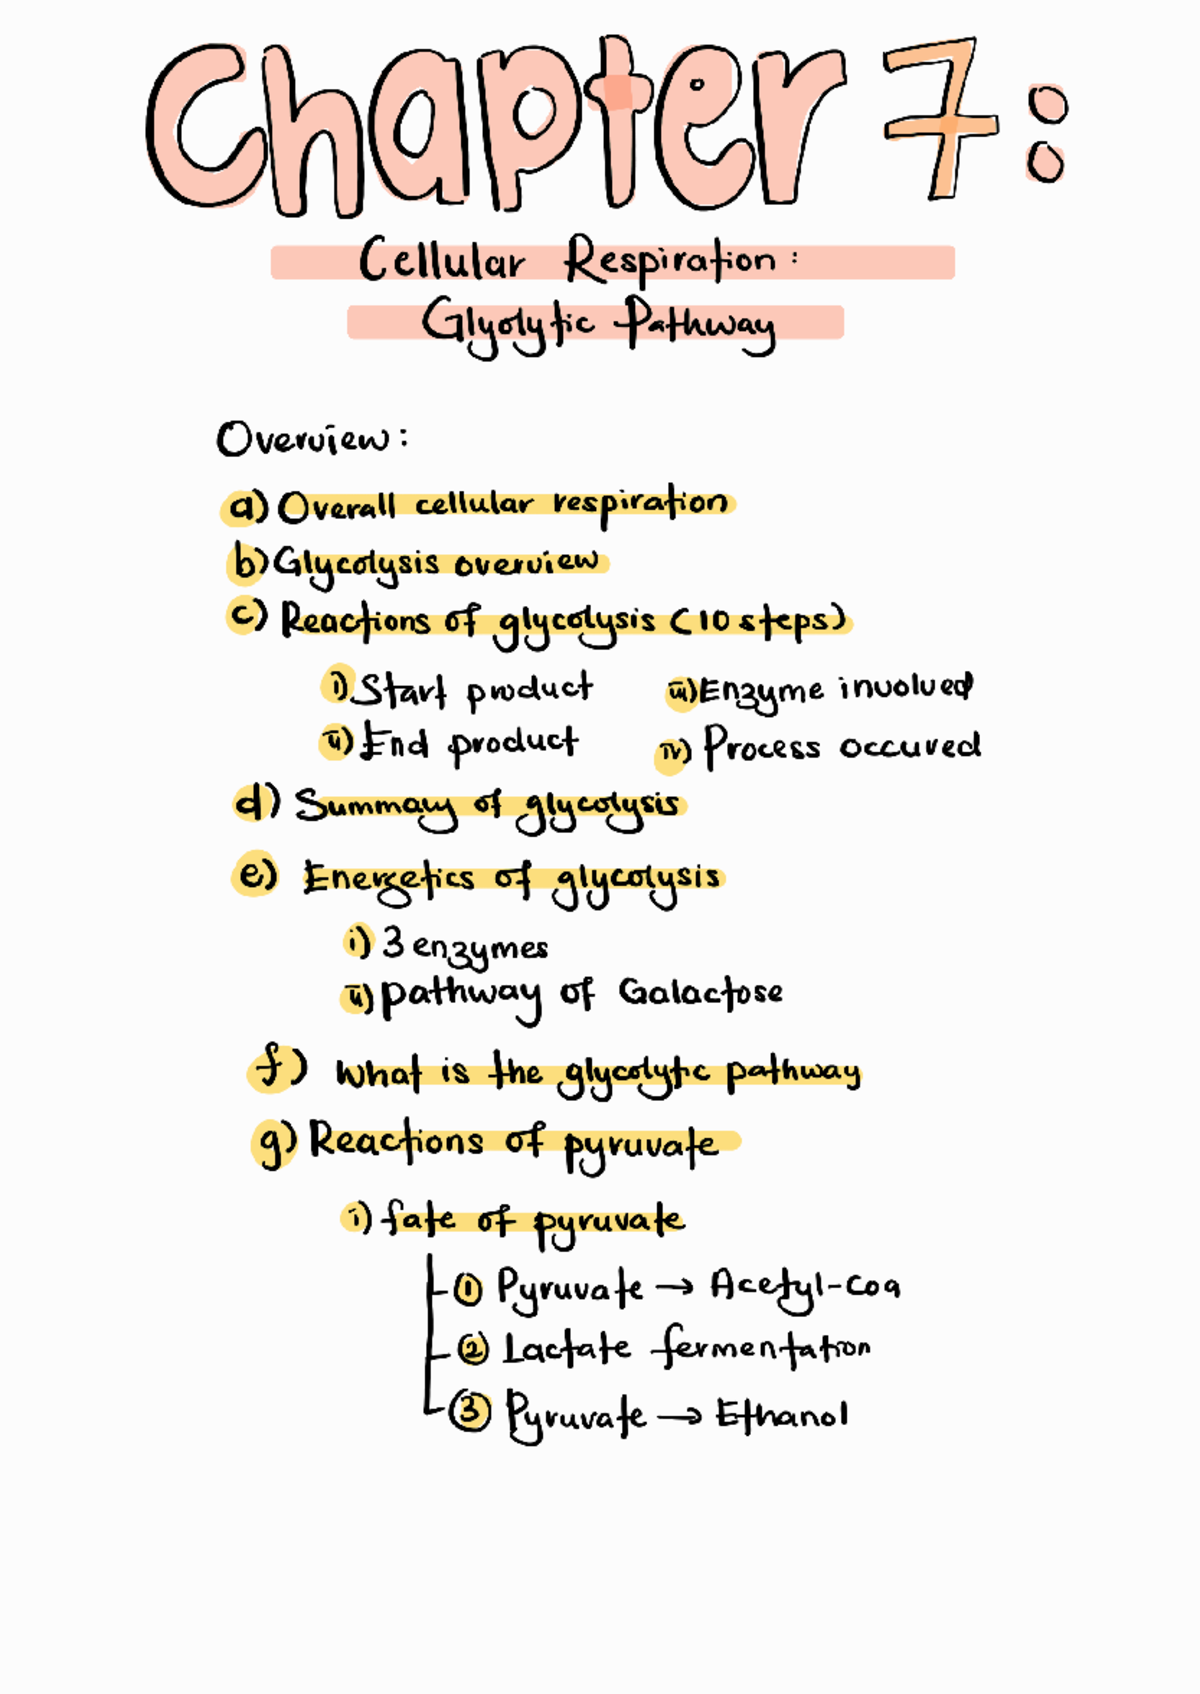 Chapter 7:
Cellular Respiration:
Glyolytic Pathway
Overview:
a) Overall cellular respiration
b) Glycolysis overview
c) Reactions of glycolysis (10 steps)
i) Start product iii) Enzyme involved
ii) End product iv) Process occured
d) Summary of glycolysis
e) Energetics of glycolysis
i) 3 enzymes
ii) pathway of Galactose
f) What is the glycolytic pathway
g) Reactions of pyruvate
i) fate of pyruvate
① Pyruvate → Acetyl-coa
② Lactate fermentation
③ Pyruvate → Ethanol